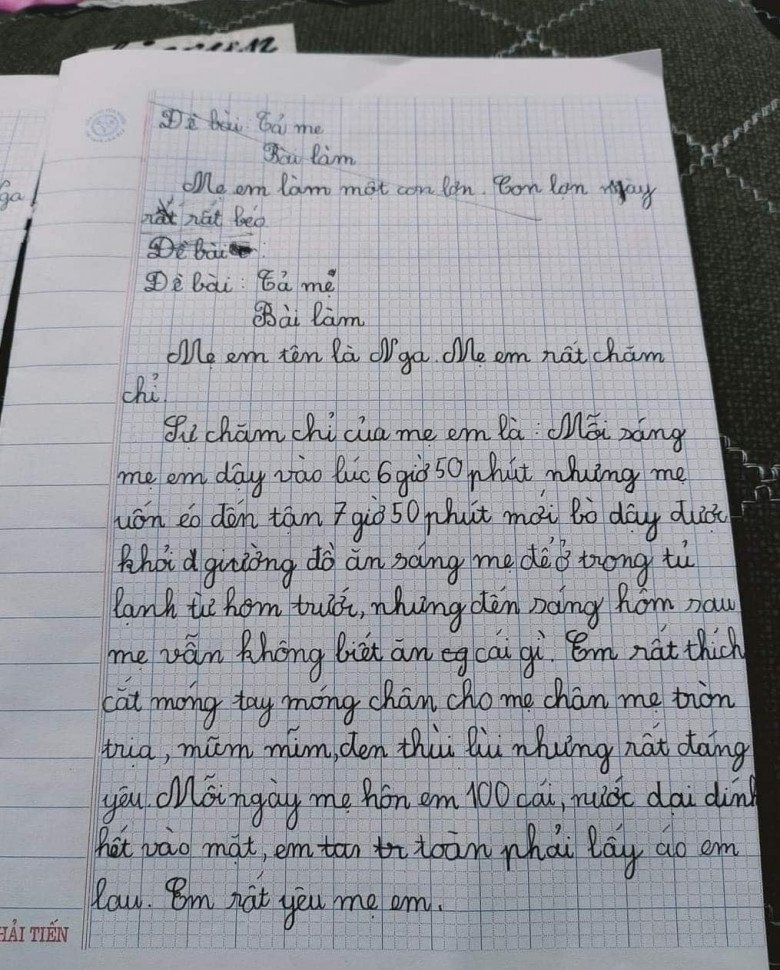 Đề bài: Tả mẹ
Bài làm
Mẹ em làm một con lợn. Con lợn này
rất rất béo
Đề bài:
Đề bài: Tả mẹ
Bài làm
Mẹ em tên là Nga. Mẹ em rất chăm
chỉ.
Sự chăm chỉ của mẹ em là: Mỗi sáng
mẹ em dậy vào lúc 6 giờ 50 phút nhưng mẹ
uốn éo đến tận 7 giờ 50 phút mới bò dậy được
khỏi d giường đồ ăn sáng mẹ để ở trong tủ
lạnh từ hôm trước, nhưng đến sáng hôm sau
mẹ vẫn không biết ăn cg cái gì. Em rất thích
cắt móng tay móng chân cho mẹ chân mẹ tròn
trịa, mũm mĩm, đen thùi lùi nhưng rất đáng
yêu. Mỗi ngày mẹ hôn em 100 cái, nước dại dính
hết vào mặt, em tan tr toàn phải lấy áo em
lau. Em rất yêu mẹ em.
HẢI TIẾN